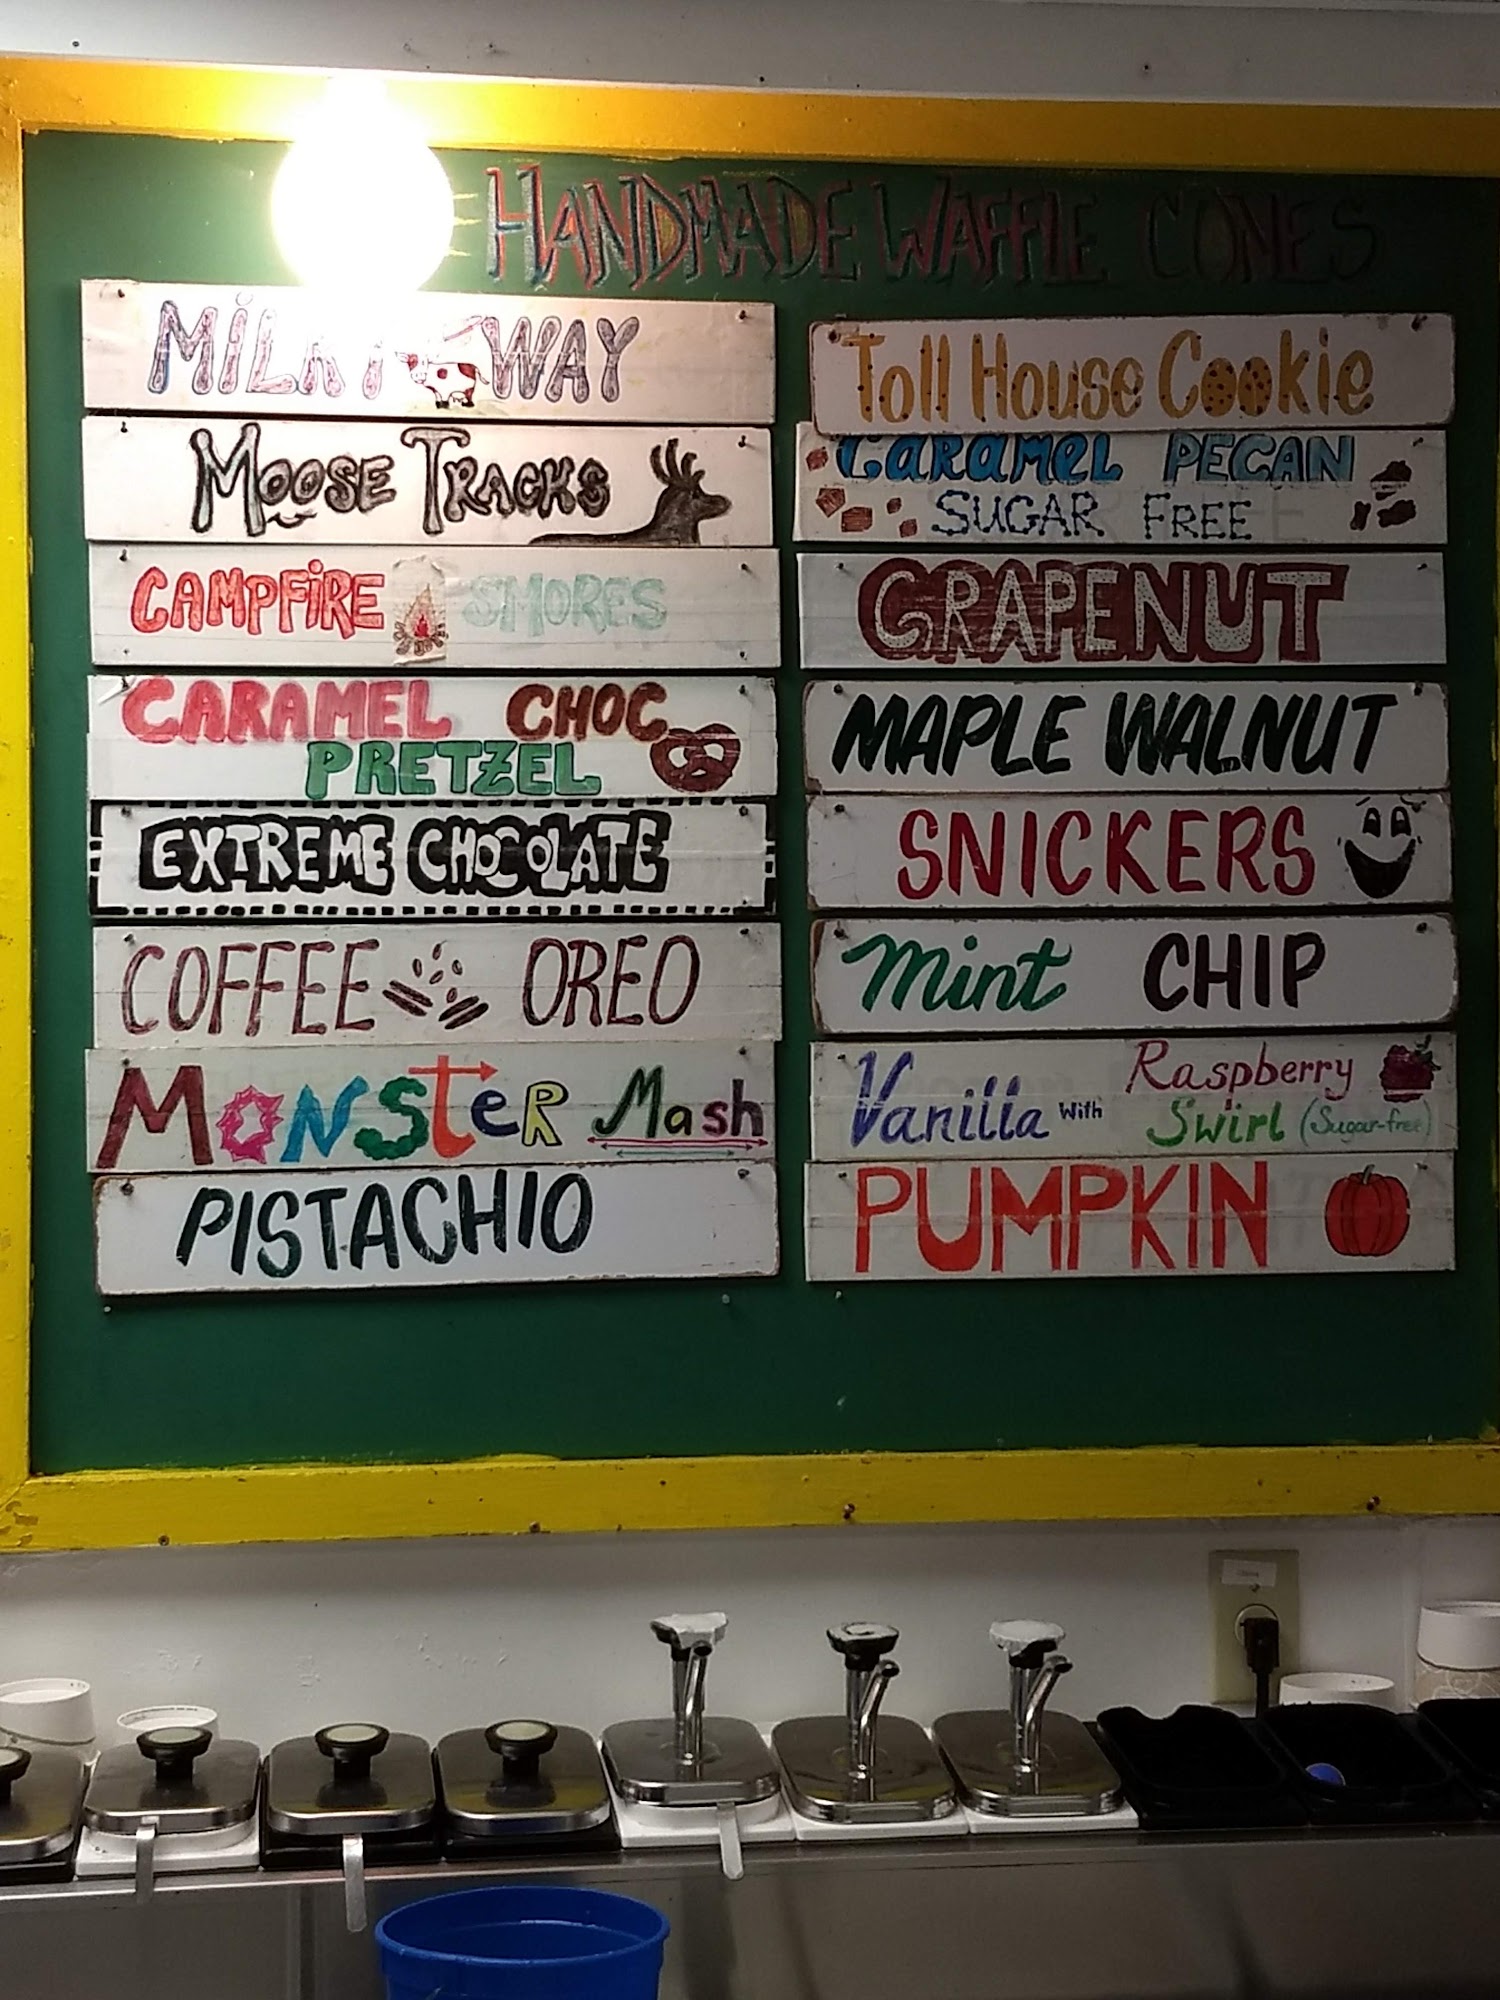 HANDMADE WAFFLE CONES
MILKY WAY
MOOSE TRACKS
CAMPFIRE SMORES
CARAMEL CHOC
PRETZEL
EXTREME CHOCOLATE
COFFEE OREO
MONSTER Mash
PISTACHIO
Toll House Cookie
CARAMEL PECAN
SUGAR FREE
GRAPENUT
MAPLE WALNUT
SNICKERS
Mint CHIP
Vanilla With Raspberry
Swirl (Sugar-free)
PUMPKIN